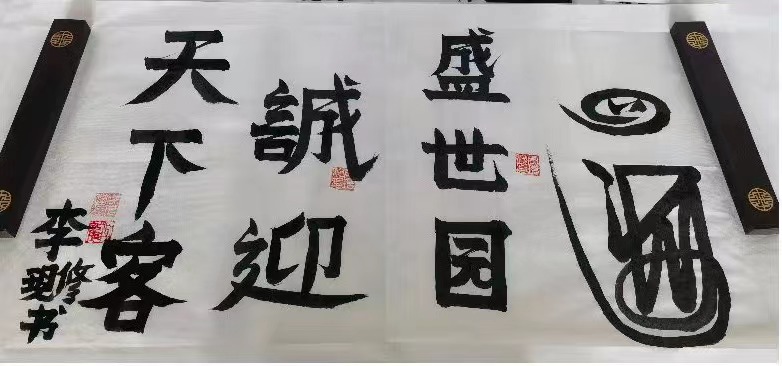 盛世园
誠迎
天下客
李修现书